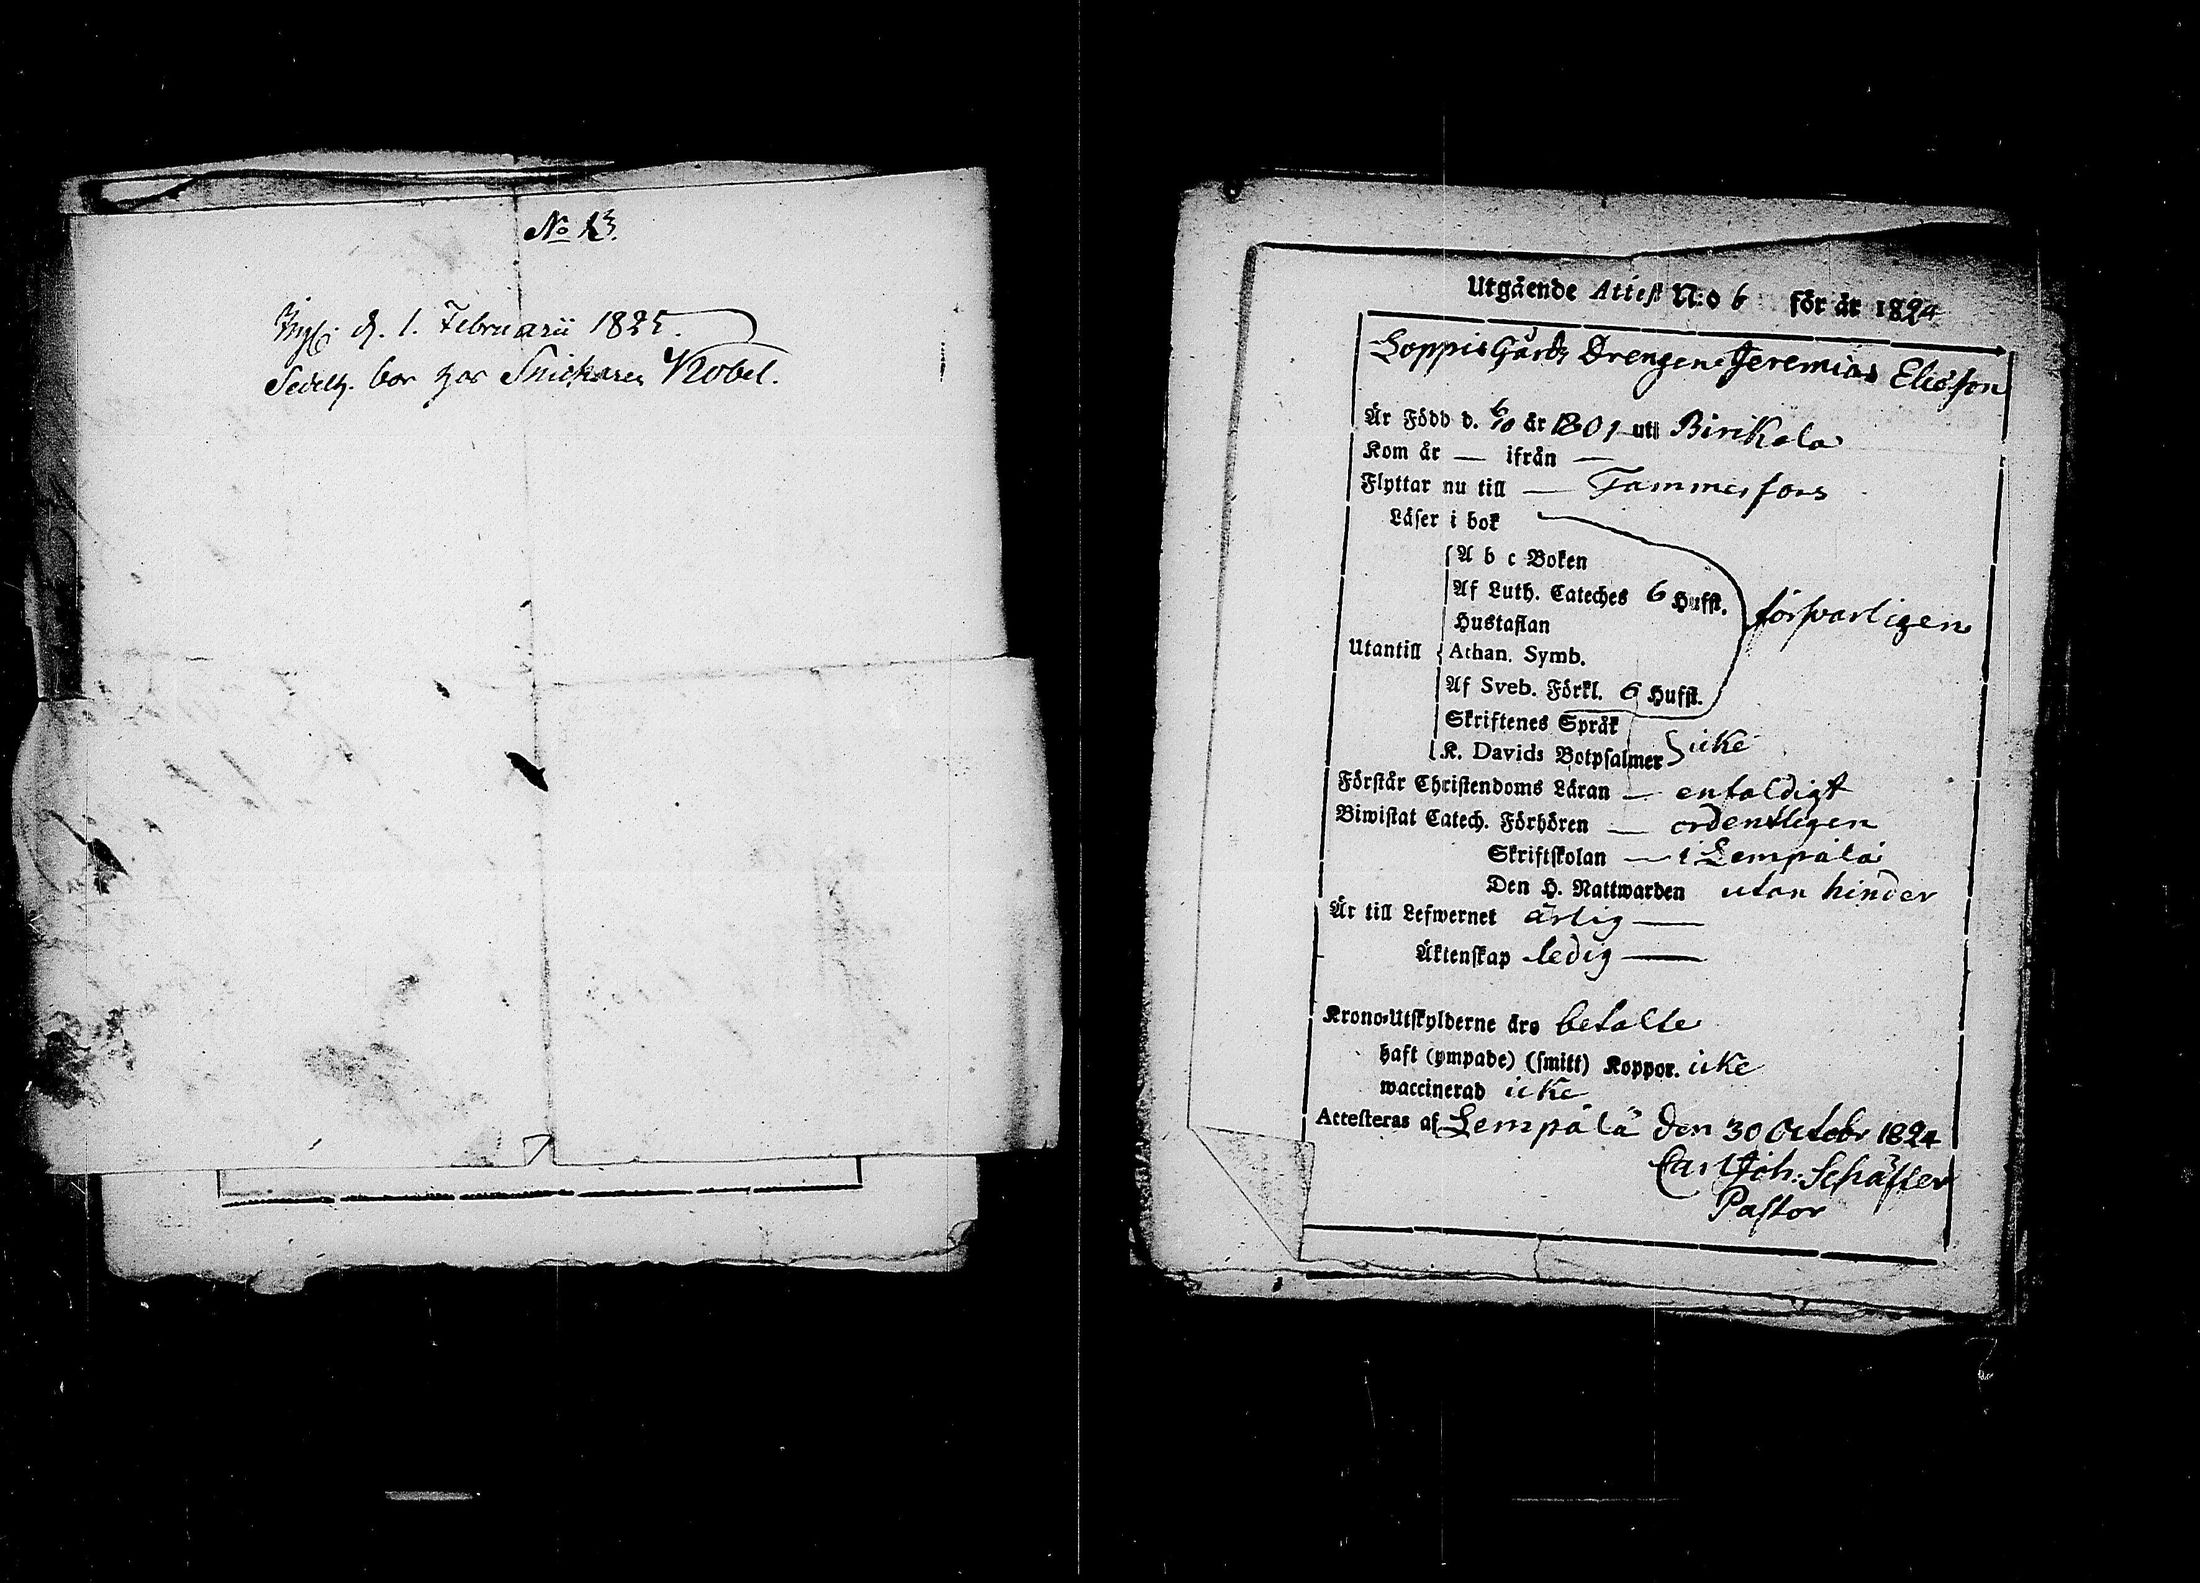 No 13.
d. 1. Februarii 1825.
bor hos Snickaren Nobel.
Utgående Attest N:o 6 för år 1824
Loppis Gårds Drengen Jeremias Eliæson
Är Född d. 6/10 år 1801 uti Birikala
Kom år — ifrån —
Flyttar nu till — Tammerfors
Läser i bok
A b c Boken
Af Luth. Cateches 6 Hufst.
Hustaflan
försvarligen
Utantill Athan. Symb.
Af Sveb. Förkl. 6 Hufst.
Skriftenes Språk
K. Davids Botpsalmer icke
Förstår Christendoms Läran — enfaldigt
Biwistat Catech. Förhören — ordentligen
Skriftskolan — i Lempälä
Den H. Nattwarden utan hinder
Är till Lefwernet ärlig —
Äktenskap ledig —
Krono-Utskylderne äro betalte
haft (ympade) (smitt) Koppor. icke
waccinerad icke
Attesteras af Lempälä den 30 Octobr 1824
Carl Joh: Schäfer
Pastor